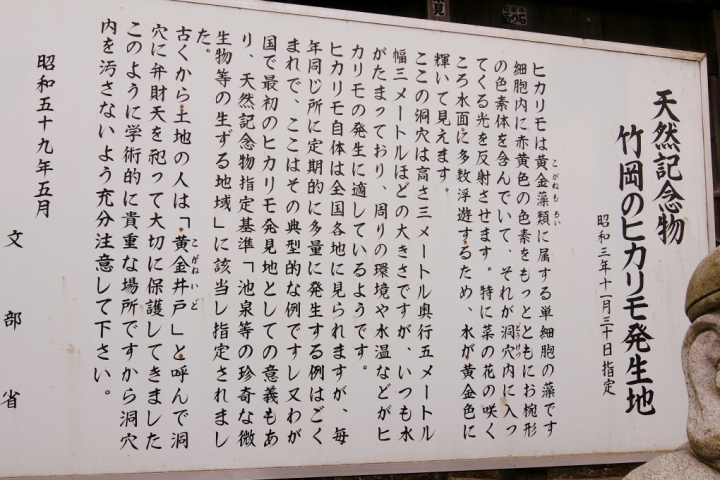 天然記念物
竹岡のヒカリモ発生地
昭和三年十一月三十日指定
ヒカリモは黄金藻類に属する単細胞の藻です
こがねもるい
細胞内に赤黄色の色素をもっとともにお椀形
の色素体を含んでいて、それが洞穴内に入っ
どうけつ
てくる光を反射させます。特に菜の花の咲く
ころ水面に多数浮遊するため、水が黄金色に
輝いて見えます。
ここの洞穴は高さ三メートル奥行五メートル
幅三メートルほどの大きさですが、いつも水
がたまっており、周りの環境や水温などがヒ
カリモの発生に適しているようです。
ヒカリモ自体は全国各地に見られますが、毎
年同じ所に定期的に多量に発生する例はごく
まれで、ここはその典型的な例ですし又わが
国で最初のヒカリモ発見地としての意義もあ
り、天然記念物指定基準「池泉等の珍奇な微
生物等の生ずる地域」に該当し指定されまし
た。
古くから土地の人は「黄金井戸」と呼んで洞
こがねいど
穴に弁財天を祀って大切に保護してきました
このように学術的に貴重な場所ですから洞穴
内を汚さないよう充分注意して下さい。
昭和五十九年五月
文部省